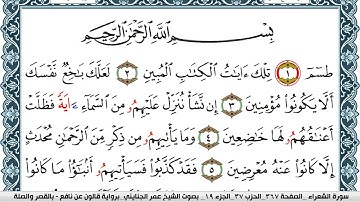 بِسْمِ اللَّهِ الرَّحْمَٰنِ الرَّحِيمِ
طسٓمٓ ١ تِلْكَ ءَايَٰتُ الْكِتَٰبِ الْمُبِينِ ٢ لَعَلَّكَ بَٰخِعٌ نَّفْسَكَ
أَلَّا يَكُونُوا مُؤْمِنِينَ ٣ إِن نَّشَأْ نُنَزِّلْ عَلَيْهِمُۥ مِنَ السَّمَآءِ ءَايَةً فَظَلَّتْ
أَعْنَٰقُهُمُۥ لَهَا خَٰضِعِينَ ٤ وَمَا يَأْتِيهِمُۥ مِن ذِكْرٍ مِّنَ الرَّحْمَٰنِ مُحْدَثٍ
إِلَّا كَانُوا عَنْهُ مُعْرِضِينَ ٥ فَقَدْ كَذَّبُوا فَسَيَأْتِيهِمُۥ أَنۢبَٰٓؤُا مَا كَانُوا
سورة الشعراء . الصفحة ٣٦٧ . الحزب ٣٧ . الجزء ١٩ . بصوت الشيخ عمر الجنايني . برواية قالون عن نافع - بالقصر والصلة